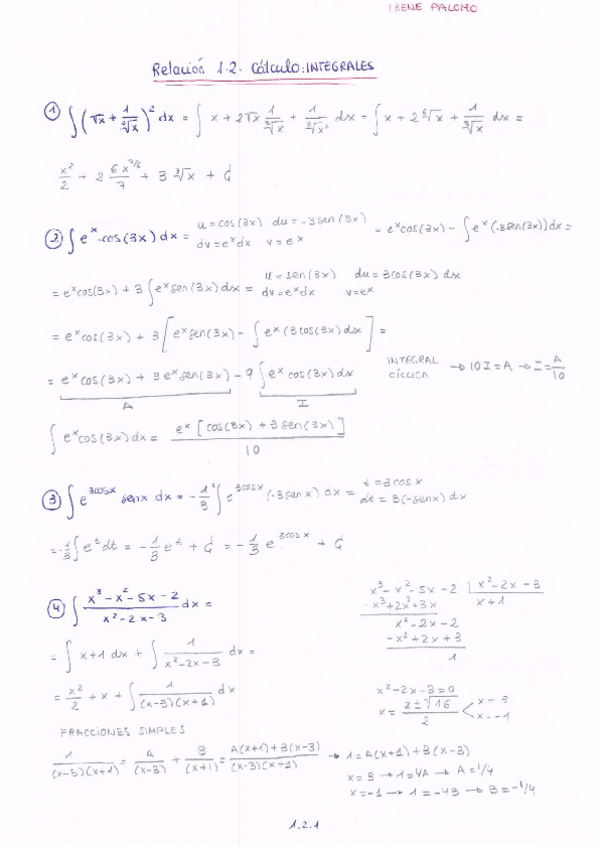 IRENE PALOMO
Relación 1.2. Cálculo: INTEGRALES
① ∫(√x + 1/∛x)² dx = ∫ x + 2√x 1/∛x + 1/∛x² dx = ∫ x + 2 ⁶√x + 1/∛x² dx =
x²/2 + 2 6x^(7/6)/7 + 3 ∛x + C
② ∫ eˣ·cos(3x) dx = u = cos(3x) du = -3 sen(3x) dv = eˣdx v = eˣ = eˣcos(3x) - ∫ eˣ(-3sen(3x))dx =
= eˣcos(3x) + 3 ∫ eˣsen(3x) dx = u = sen(3x) du = 3cos(3x) dx dv = eˣdx v = eˣ
= eˣcos(3x) + 3 [eˣsen(3x) - ∫ eˣ(3cos(3x)dx] =
= eˣcos(3x) + 3eˣsen(3x) - 9 ∫ eˣcos(3x) dx INTEGRAL CÍCLICA → 10I = A → I = A/10
A I
∫ eˣcos(3x) dx = eˣ[cos(3x) + 3sen(3x)]/10
③ ∫ e^(3cosx) senx dx = -1/3 ∫ e^(3cosx) (-3senx) dx = t = 3cosx dt = 3(-senx) dx
= -1/3 ∫ eᵗdt = -1/3 eᵗ + C = -1/3 e^(3cosx) + C
④ ∫ (x³ - x² - 5x - 2)/(x² - 2x - 3) dx =
x³ - x² - 5x - 2 | x² - 2x - 3
-x³ + 2x² + 3x x + 1
x² - 2x - 2
-x² + 2x + 3
1
= ∫ x + 1 dx + ∫ 1/(x² - 2x - 3) dx =
= x²/2 + x + ∫ 1/((x-3)(x+1)) dx
x² - 2x - 3 = 0
x = (2 ± √16)/2 < x = 3 x = -1
FRACCIONES SIMPLES
1/((x-3)(x+1)) = A/(x-3) + B/(x+1) = (A(x+1) + B(x-3))/((x-3)(x+1)) → 1 = A(x+1) + B(x-3)
x = 3 → 1 = 4A → A = 1/4
x = -1 → 1 = -4B → B = -1/4
1.2.1